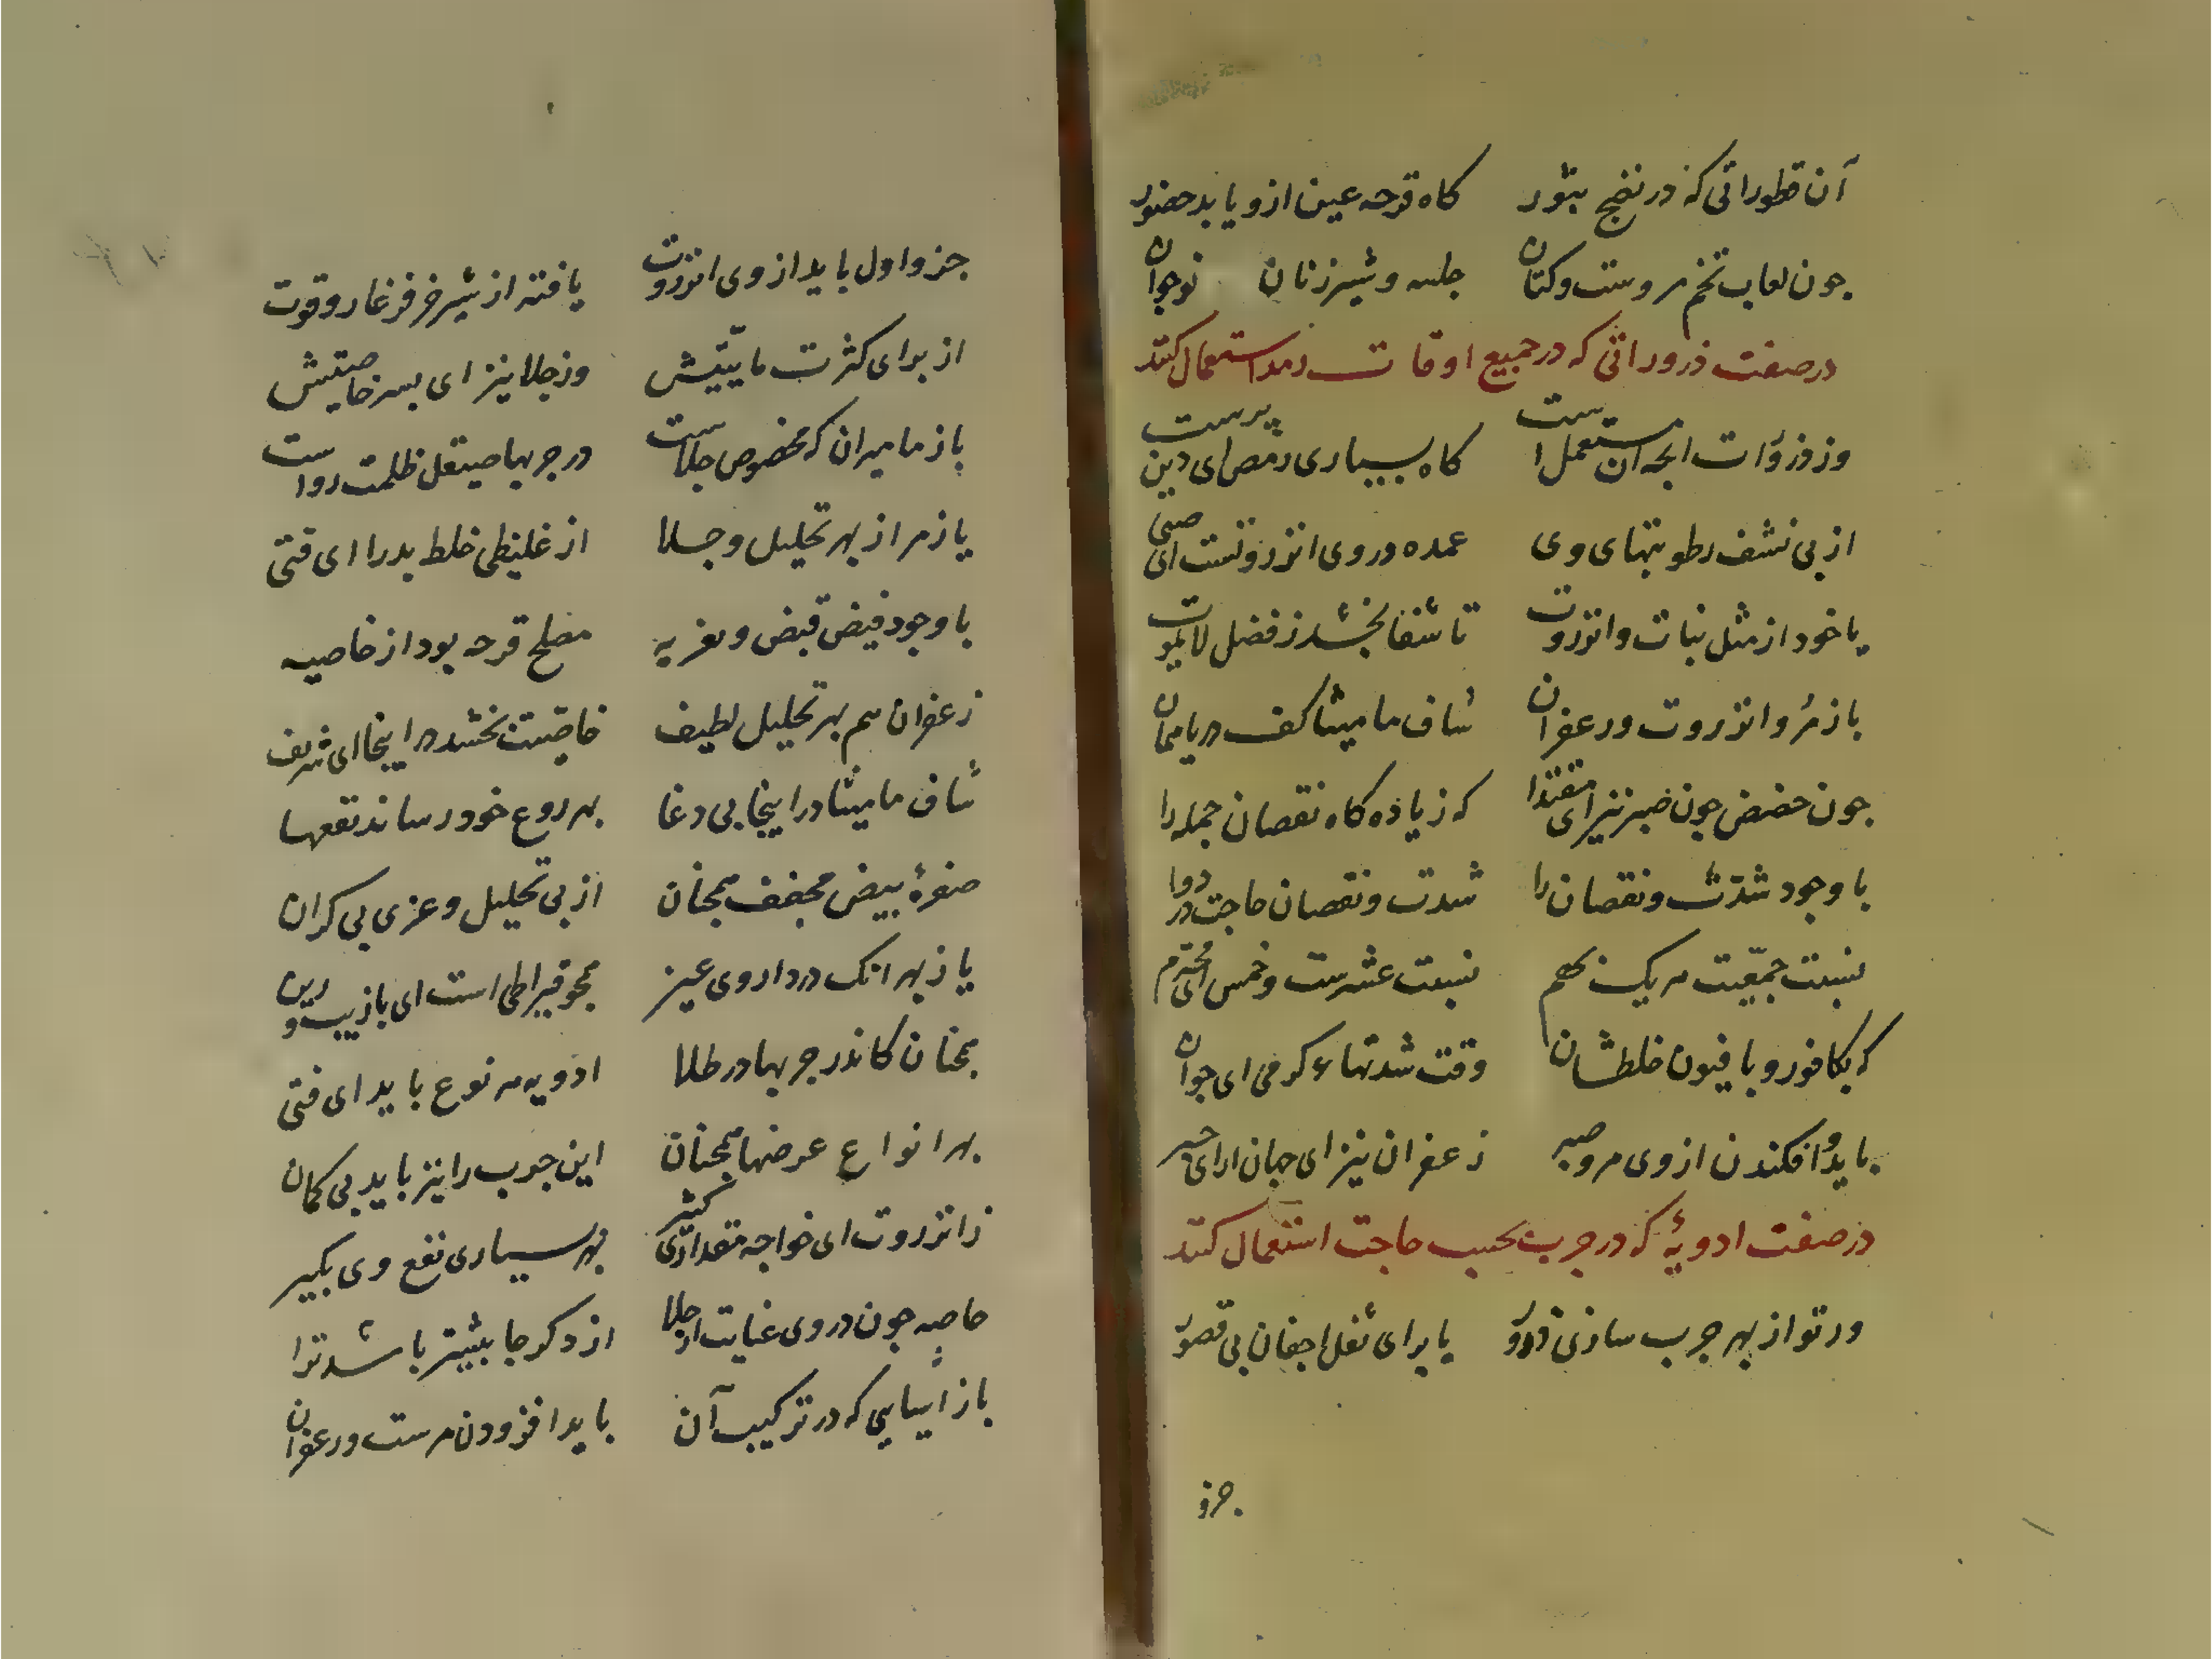 آن قطوراتی که در نضج بثور کاه قرحه عین ازو یابد حضور
جون لعاب تخم مروست و کتان حلبه و شیر زنان نوجوان
در صفت ذروراتی که در جمیع اوقات رمد استعمال کنند
وز ذرورات انجه آن مستعمل است کاه بسیاری رمص ای دین پرست
از بی نشف رطوبتهای وی عمده در وی انزروتست ای صبی
یا خود از مثل نبات و انزروت تا شفا بخشد ز فضل لایموت
باز مر و انزروت و زعفران شاف مامیثا کف دریا همان
جون حضض جون صبر نیز ای مقتدا که زیاده کاه نقصان جمله را
با وجود شدت و نقصان را شدت و نقصان حاجت در دوا
نسبت جمعیت هر یک بهم نسبت عشرست و خمس ای محترم
که بکافور و بافیون خلطشان وقت شدتهاء کرمی ای جوان
باید افکندن ازوی مر و صبر زعفران نیز ای جهان ارای حبر
در صفت ادویۀ که در جرب بحسب حاجت استعمال کنند
ور تو از بهر جرب سازی ذرور یا برای ثقل اجفان بی قصور
جزو
جزو اول باید از وی انزروت یافته از شیر خر فرغار و قوت
از برای کثرت ماییتش وز جلا نیز ای پسر خاصیتش
باز مامیران که مخصوص جلاست در جربها صیقل ظلمت رواست
یا ز مر از بهر تحلیل و جلا از غلیظی خلط بد را ای فتی
با وجود فیض قبض و تغریه مصلح قرحه بود از خاصیه
زعفران هم بهر تحلیل لطیف خاصیت بخشد در اینجا ای شریف
شاف مامیثا در اینجا بی دغا بهر روع خود رساند نفعها
صفرۀ بیض مجفف همجنان از بی تحلیل و غری بی کران
یا ز بهر انک در داروی عین همجو قیراطی است ای با زیب و زین
همجنان کاندر جربها در طلا ادویه هر نوع باید ای فتی
بهر انواع عرضها همجنان این جرب را نیز باید بی کمان
ز انزروت ای خواجه مقداری کثیر بهر بسیاری نفع وی بکیر
خاصه جون در وی عنایت از جلا از دکر جا بیشتر باشد ترا
باز آنهایی که در ترکیب آن باید افزودن مرست و زعفران